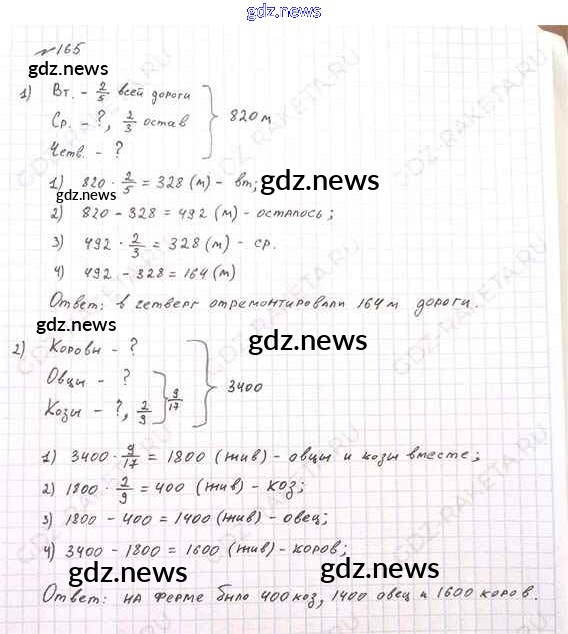 gdz.news
№165
gdz.news
1) Вт. - 2/5 всей дороги
Ср. - ?, 2/3 остав
Четв. - ?
820 м
1) 820 · 2/5 = 328 (м) - вт;
gdz.news
gdz.news
2) 820 - 328 = 492 (м) - осталось;
3) 492 · 2/3 = 328 (м) - ср.
4) 492 - 328 = 164 (м)
Ответ: в четверг отремонтировали 164 м дороги.
gdz.news
gdz.news
2) Коровы - ?
Овцы - ?
Козы - ?, 2/9
9/17
3400
1) 3400 · 9/17 = 1800 (жив) - овцы и козы вместе;
2) 1800 · 2/9 = 400 (жив) - коз;
3) 1800 - 400 = 1400 (жив) - овец;
4) 3400 - 1800 = 1600 (жив) - коров;
gdz.news
gdz.news
Ответ: на ферме было 400 коз, 1400 овец и 1600 коров.
GDZ-RAKETA.RU